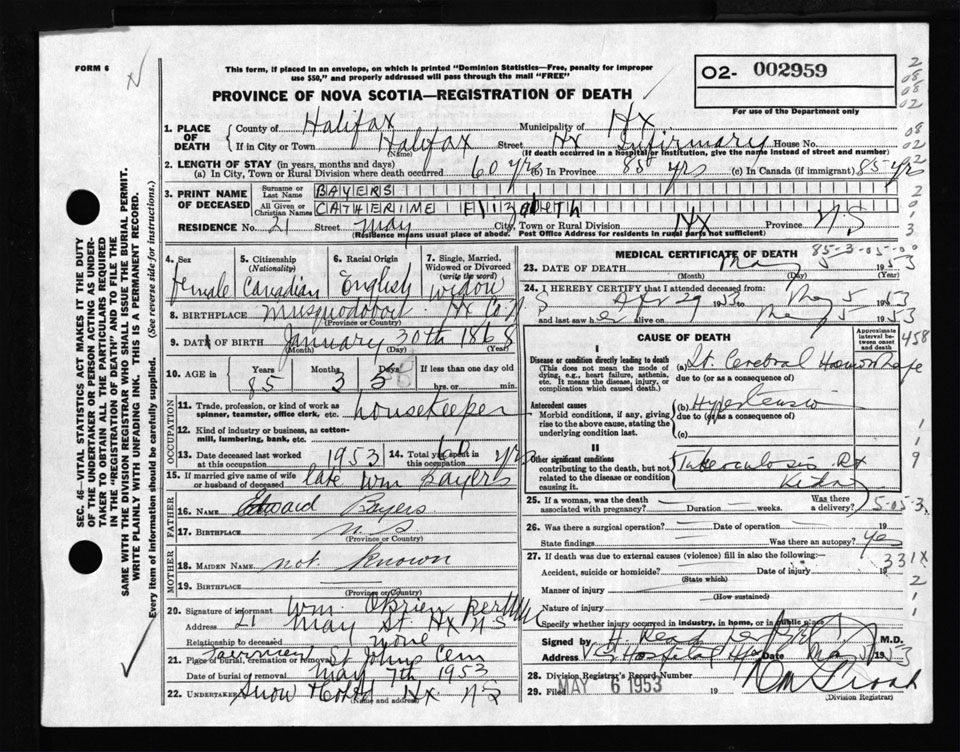 FORM 6
N
This form, if placed in an envelope, on which is printed "Dominion Statistics—Free, penalty for improper
use $50," and properly addressed will pass through the mail "FREE"
02- 002959
PROVINCE OF NOVA SCOTIA—REGISTRATION OF DEATH
For use of the Department only
2
08
08
02
08
02
2
2
0
1
3
1. PLACE OF DEATH
County of Halifax Municipality of Hx
If in City or Town Halifax Street Hx Infirmary House No.
(Name) (If death occurred in a hospital or institution, give the name instead of street and number)
2. LENGTH OF STAY (in years, months and days)
(a) In City, Town or Rural Division where death occurred 60 yrs (b) In Province 85 yrs (c) In Canada (if immigrant) 85 yrs
3. PRINT NAME OF DECEASED
Surname or Last Name BAYERS
All Given or Christian Names CATHERIME Elizabeth
RESIDENCE No. 21 Street May City, Town or Rural Division Hx Province N.S
(Residence means usual place of abode. Post Office Address for residents in rural parts not sufficient)
4. Sex
female
5. Citizenship (Nationality)
Canadian
6. Racial Origin
English
7. Single, Married, Widowed or Divorced (write the word)
widow
8. BIRTHPLACE Musquodoboit Hx Co. N S
(Province or Country)
9. DATE OF BIRTH January 30th 1868
(Month) (Day) (Year)
10. AGE in Years Months Days If less than one day old
85 3 5 hrs. or min.
OCCUPATION
11. Trade, profession, or kind of work as spinner, teamster, office clerk, etc. housekeeper
12. Kind of industry or business, as cotton-mill, lumbering, bank, etc.
13. Date deceased last worked at this occupation 1953
14. Total years spent in this occupation 60 yrs
15. If married give name of wife or husband of deceased late Wm Bayers
FATHER
16. Name Edward Bayers
17. BIRTHPLACE N. S
(Province or Country)
MOTHER
18. MAIDEN NAME not known
19. BIRTHPLACE
(Province or Country)
20. Signature of informant Wm. O'Brien
Address 21 May St. Hx N S
Relationship to deceased none
21. Place of burial, cremation or removal St Johns Cem
Date of burial or removal May 7th 1953
22. Undertaker Snow Hx. N S
(Name and address)
MEDICAL CERTIFICATE OF DEATH
85-3-05-00
23. DATE OF DEATH May 5 1953
(Month) (Day) (Year)
24. I HEREBY CERTIFY that I attended deceased from:
Apr 29 1953 to May 5 1953
and last saw her alive on May 5 1953
CAUSE OF DEATH
Approximate interval between onset and death
458
I
Disease or condition directly leading to death
(This does not mean the mode of dying, e.g., heart failure, asthenia, etc. It means the disease, injury, or complication which caused death.)
(a) Lt. Cerebral Hemorrhage
due to (or as a consequence of)
Antecedent causes
Morbid conditions, if any, giving rise to the above cause, stating the underlying condition last.
(b) Hypertension
due to (or as a consequence of)
(c)
II
Other significant conditions contributing to the death, but not related to the disease or condition causing it.
Tuberculosis Rt
Kidney
1
1
9
25. If a woman, was the death associated with pregnancy? Duration weeks. Was there a delivery?
5-05-3
26. Was there a surgical operation? Date of operation 19
State findings Was there an autopsy? Yes
27. If death was due to external causes (violence) fill in also the following:
331X
Accident, suicide or homicide? Date of injury 19
(State which)
2
Manner of injury
(How sustained)
1
Nature of injury
Specify whether injury occurred in industry, in home, or in public place
Signed by M.D.
Address Hospital Date May 1953
28. Division Registrar's Record Number
29. Filed MAY 6 1953 19
(Division Registrar)
SEC. 46—VITAL STATISTICS ACT MAKES IT THE DUTY
OF THE UNDERTAKER OR PERSON ACTING AS UNDER-
TAKER TO OBTAIN ALL THE PARTICULARS REQUIRED
IN THE "REGISTRATION OF DEATH" AND TO FILE THE
SAME WITH THE DIVISION REGISTRAR WHO SHALL ISSUE THE BURIAL PERMIT.
WRITE PLAINLY WITH UNFADING INK. THIS IS A PERMANENT RECORD.
Every item of information should be carefully supplied. (See reverse side for instructions.)